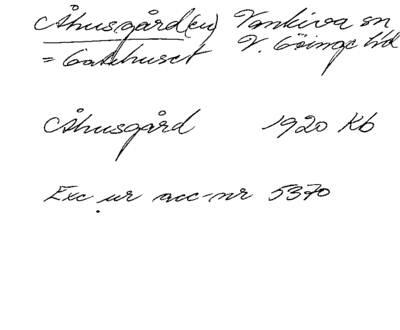 Åhusgård(en) Vankiva sn
= Gatehuset V. Göinge hd
Åhusgård 1920 Kb
Exc ur acc-nr 5370